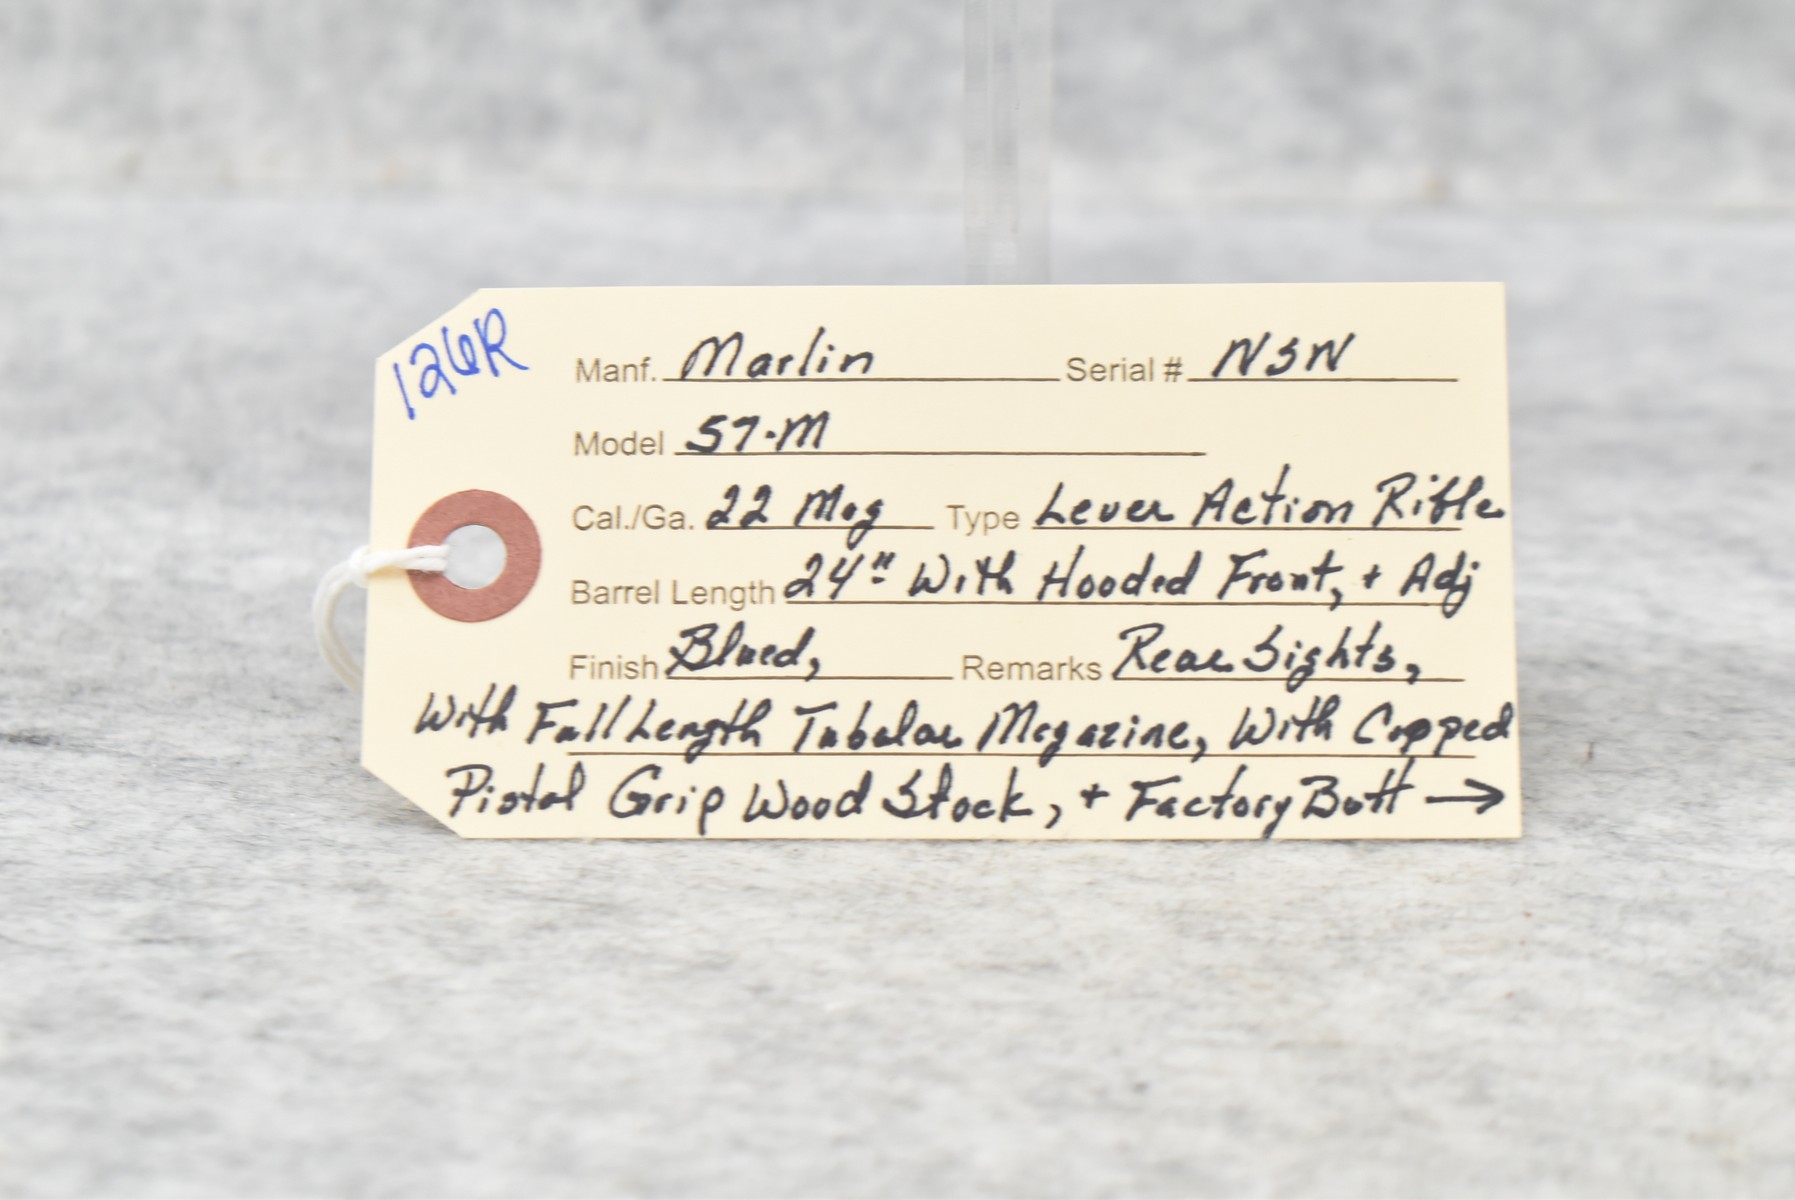 126R
Manf. Marlin Serial # NSN
Model 57-M
Cal./Ga. 22 Mag Type Lever Action Rifle
Barrel Length 24" With Hooded Front, + Adj
Finish Blued, Remarks Rear Sights,
With Full Length Tubular Magazine, With Capped
Pistol Grip Wood Stock, + Factory Butt →